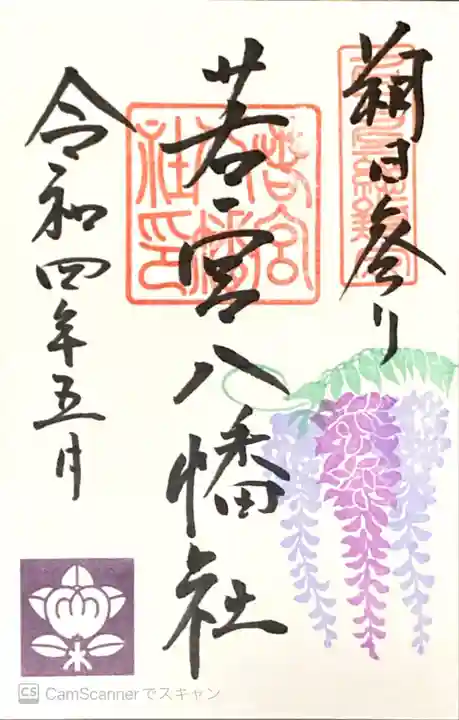 朔日参り
若宮八幡社
令和四年五月
若宮八幡社印
CS CamScannerでスキャン